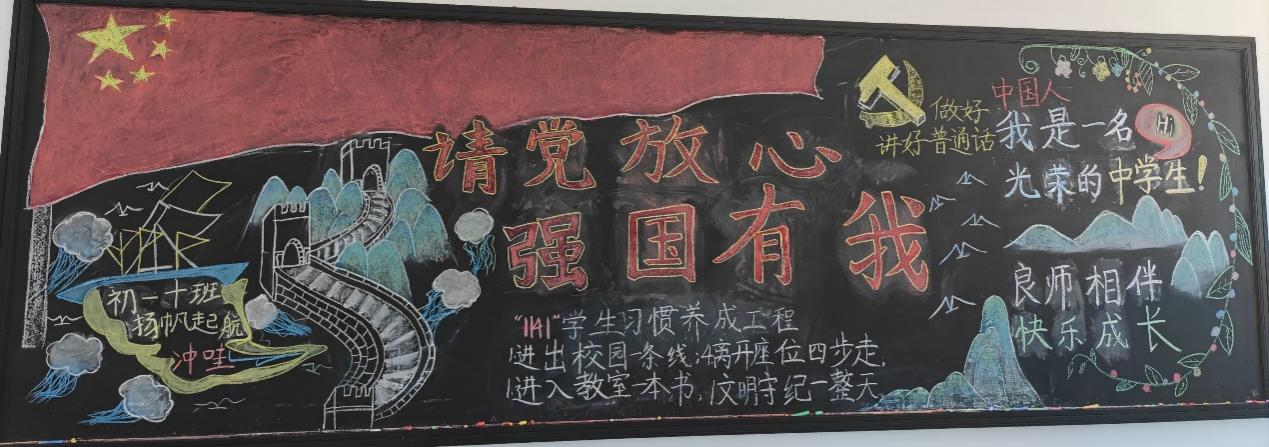 请党放心
强国有我
初一十班
扬帆起航
冲哇
"1141"学生习惯养成工程
1进出校园一条线;4离开座位四步走,
1进入教室一本书,1文明守纪一整天
做好
中国人
讲好普通话
我是一名
Hi
光荣的中学生!
良师相伴
快乐成长